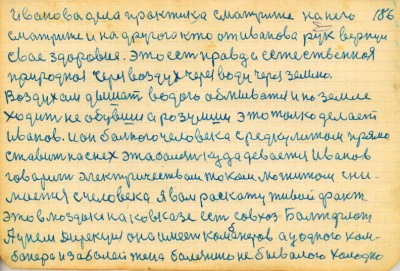 Иванова одна практика сматрите на него 186
сматрите и на другога кто от иванова рук вернул
свае здоровия. Это ест правда естественная
природная через воздух через воду через землю.
Воздухам дышат водою обмиватся и по земле
ходит не обувши а розувши это толко делает
Иванов. И он болного человека с редкулитом прямо
ставит на снех эта болезн куда девается Иванов
говорит электричеством током магнитом сни
мается с человека Я вам раскажу живой факт
это в моздоки на ковказе ест совхоз
директор она имеет комбанеров а у одного ком
банера и заболей жена болезню не бывалаю Холодно